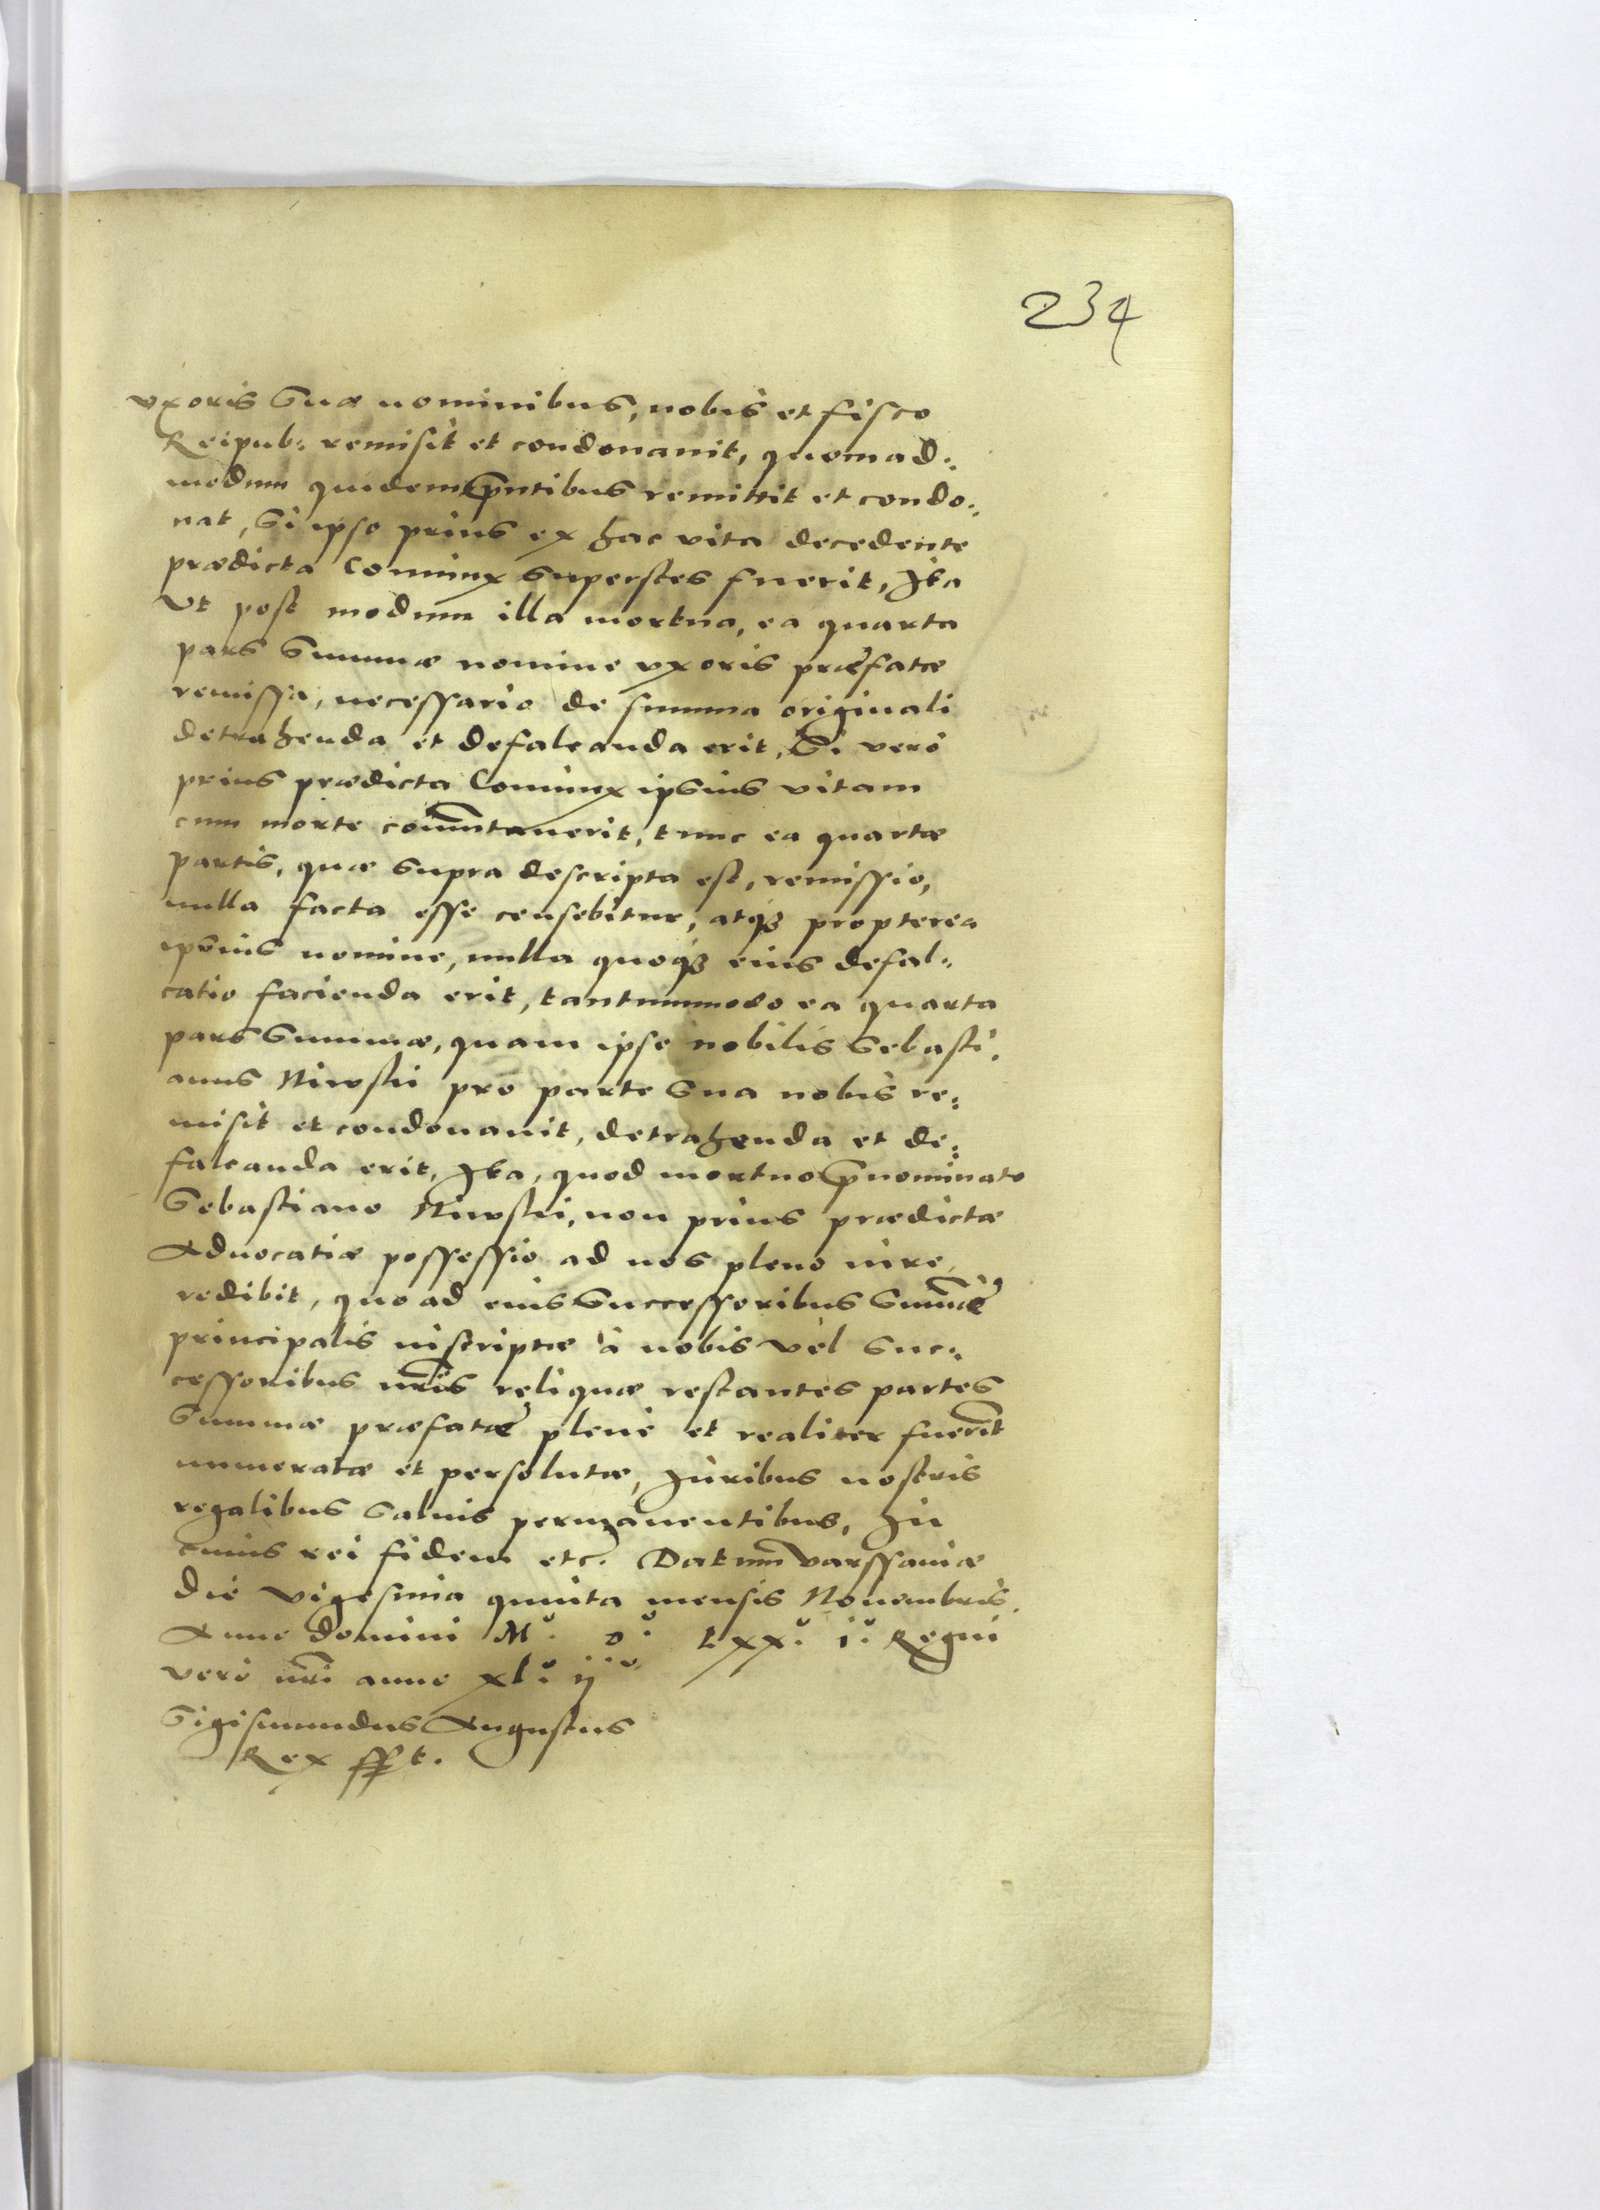 234
uxoris suæ nominibus, nobis et fisco
Reipub: remisit et condonauit, quemad:
modum quidem pñtibus remittit et condo:
nat, si ipso prius ex hac vita decedente
prædicta Coniunx superstes fuerit, Ita
vt post modum illa mortua, ea quarta
pars summæ nomine vxoris præfatæ
remissa, necessario de summa originali
detrahenda et defalcanda erit, Si vero
prius prædicta Coniunx ipsius vitam
cum morte com̃utauerit, tunc ea quartæ
partis, quæ supra descripta est, remissio,
nulla facta esse censebitur, atqꝫ propterea
ipsius nomine, nulla quoqꝫ eius defal:
catio facienda erit, tantummodo ea quarta
pars summæ, quam ipse nobilis Sebasti:
anus Niwski pro parte sua nobis re:
misit et condonauit, detrahenda et de:
falcanda erit, Ita, quod mortuo p̃nominato
Sebastiano Niwski, non prius prædictæ
Aduocatiæ possessio ad nos pleno iure
redibit, quo ad eius successoribus sum̃æ
principalis inscriptæ à nobis vel suc:
cessoribus nr̃is reliquæ restantes partes
summæ præfatæ plenè et realiter fuerĩt
numeratæ et persolutæ, Juribus nostris
regalibus saluis permanentibus, In
cuius rei fidem etc. Datum Varssauiæ
die vigesima quinta mensis Nouembris
Anno domini Mº. Dº. Lxxº. iº. Regni
vero nr̃i anno xlº. ijº
Sigismundus Augustus
Rex sspt.